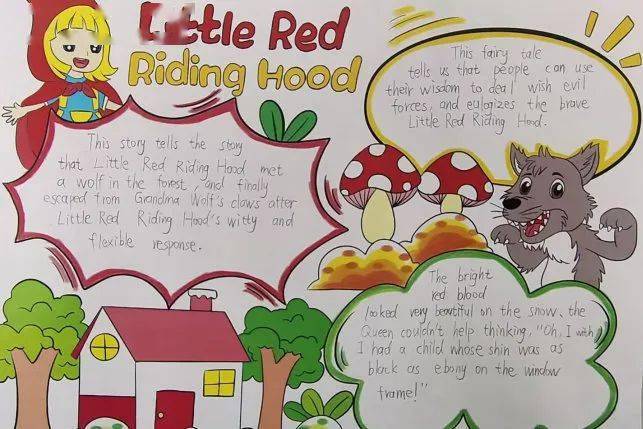 Little Red
Riding Hood
This story tells the story
that Little Red Riding Hood met
a wolf in the forest, and finally
escaped from Grandma Wolf's claws after
Little Red Riding Hood's witty and
flexible response.
This fairy tale
tells us that people can use
their wisdom to deal wish evil
forces, and eulogizes the brave
Little Red Riding Hood.
The bright
red blood
looked very beautiful on the snow, the
Queen couldn't help thinking, "Oh, I wish
I had a child whose shin was as
black as ebony on the window
frame!"